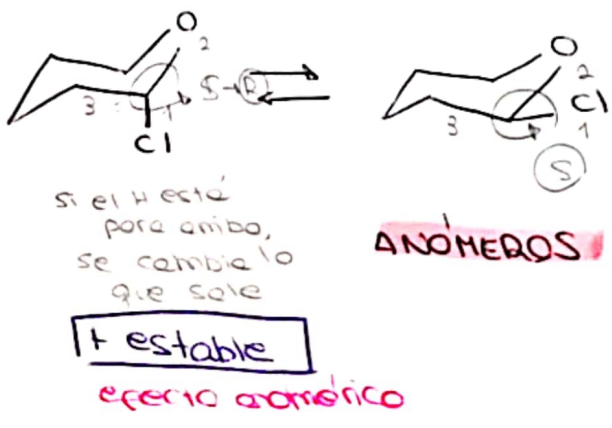 O
2
3
1
S → R
Cl
O
2
Cl
3
1
S
si el H está
para arriba,
se cambia lo
que sale
ANÓMEROS
+ estable
efecto anomérico